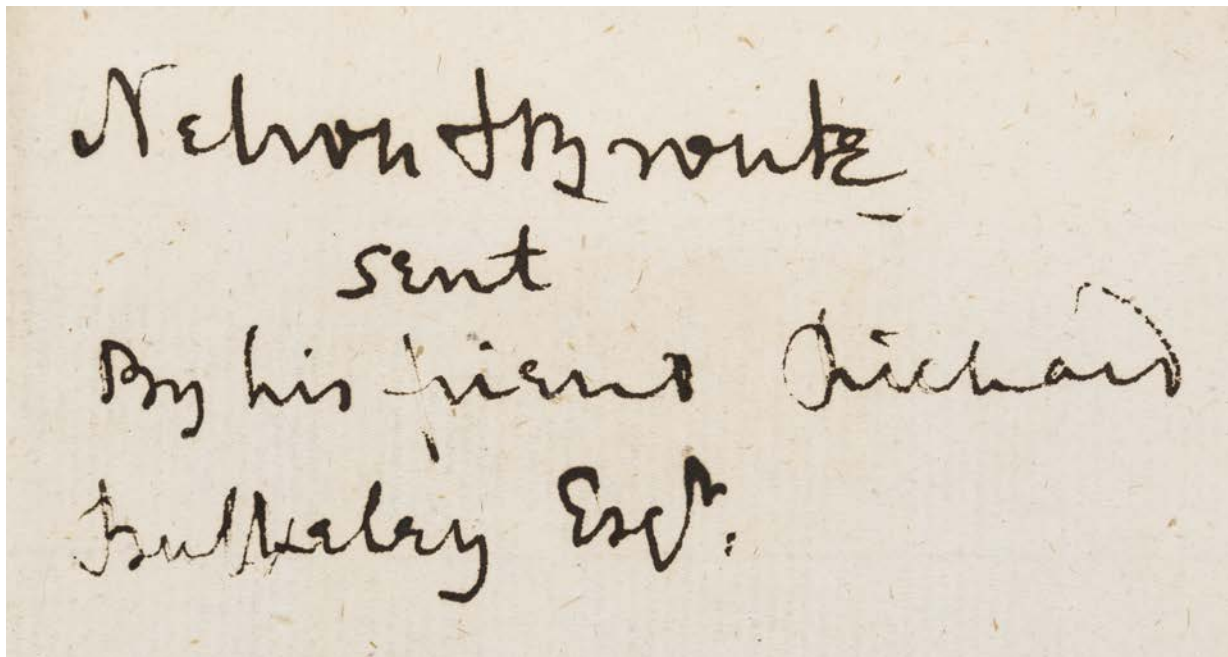 Nelson & Bronte
sent
By his friend Richard
Bulkeley Esqr.